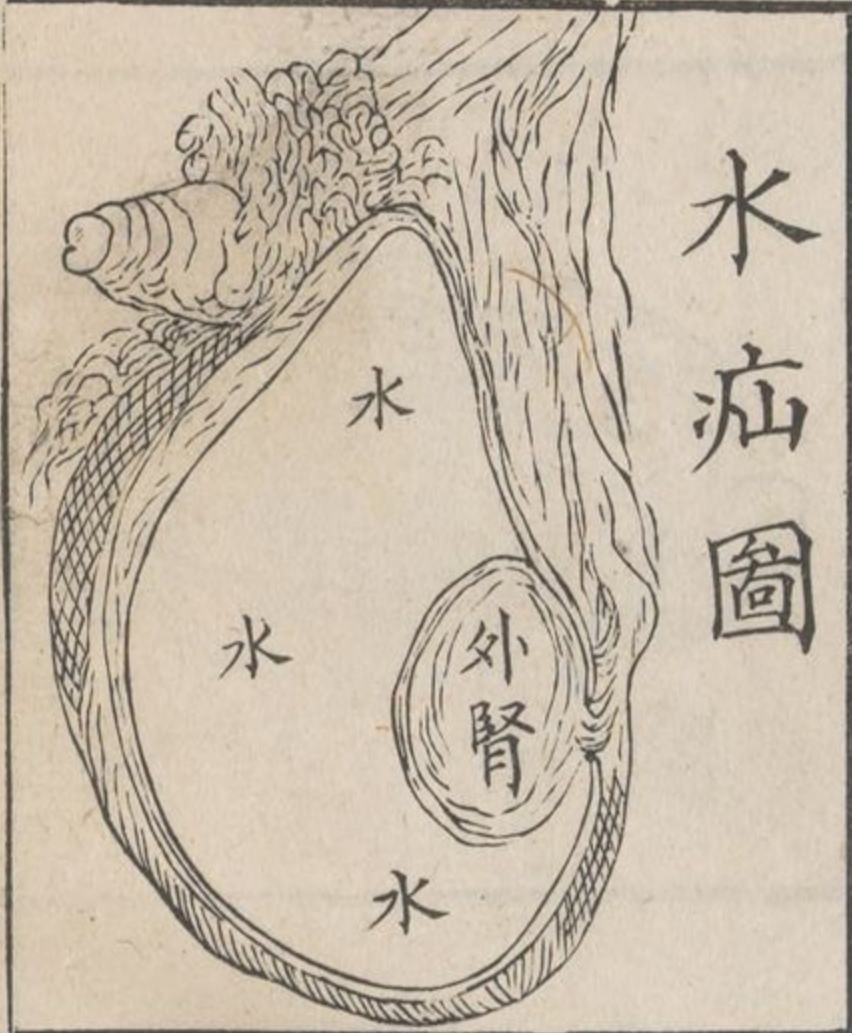 水疝圖
水
水
外腎
水